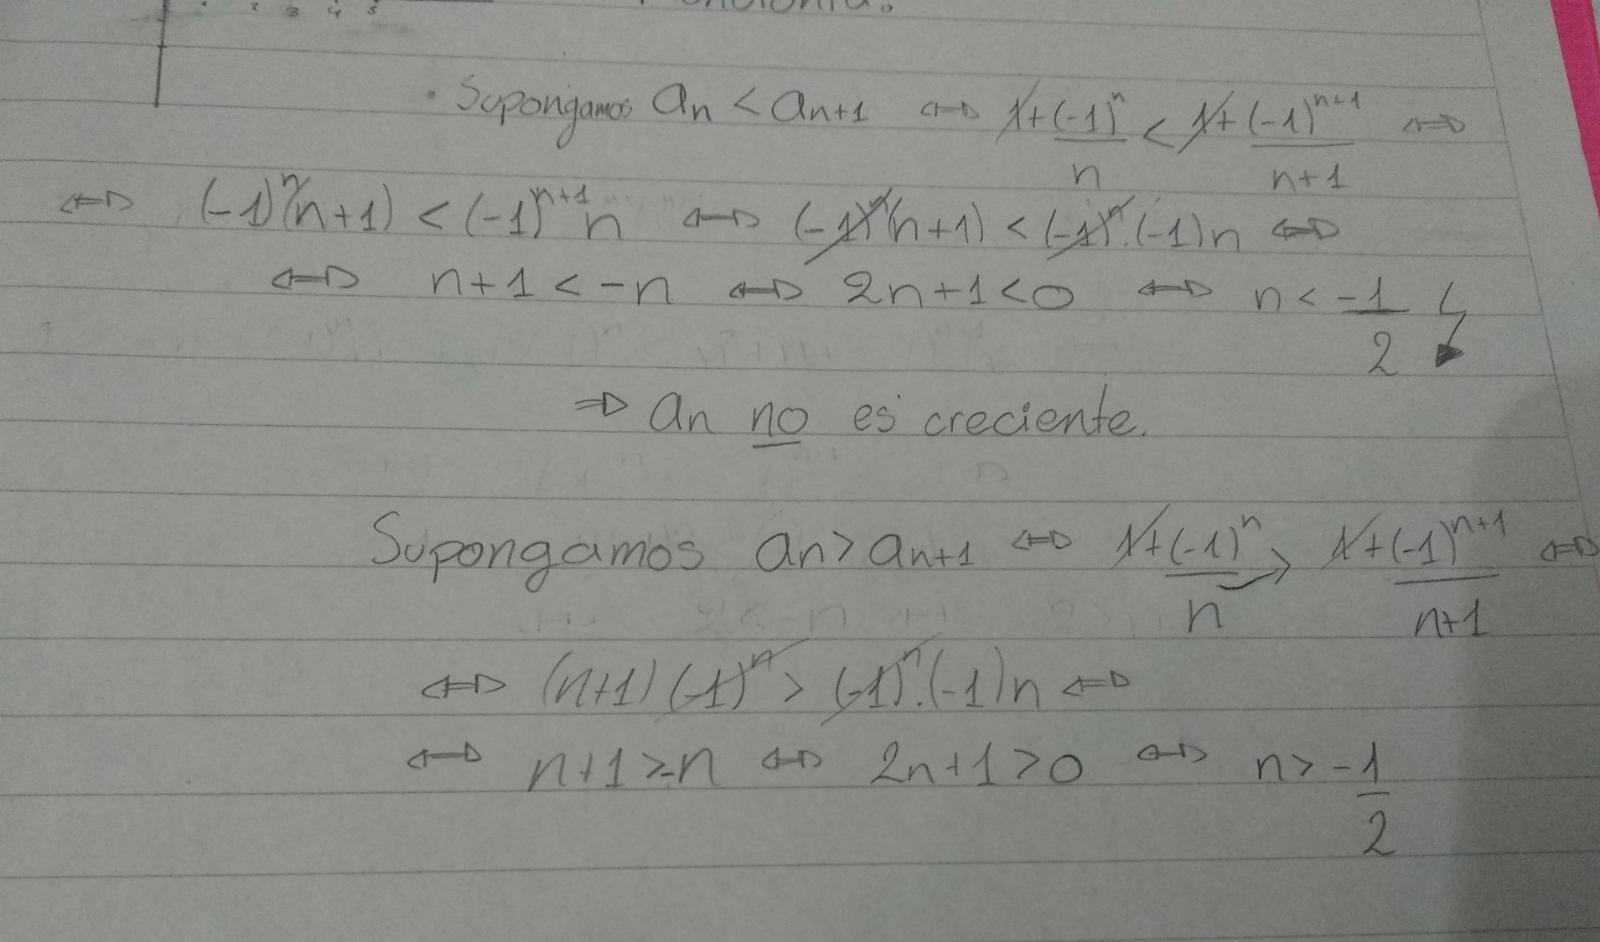 1 2 3 4 5
· Supongamos an < an+1 ⇔ 1 + (-1)^n / n < 1 + (-1)^(n+1) / n+1 ⇔
⇔ (-1)^n (n+1) < (-1)^(n+1) n ⇔ (-1)^n (n+1) < (-1)^n · (-1) n ⇔
⇔ n+1 < -n ⇔ 2n+1 < 0 ⇔ n < -1/2
⇒ an no es creciente.
Supongamos an > an+1 ⇔ 1 + (-1)^n / n > 1 + (-1)^(n+1) / n+1 ⇔
⇔ (n+1) (-1)^n > (-1)^n · (-1) n ⇔
⇔ n+1 > -n ⇔ 2n+1 > 0 ⇔ n > -1/2